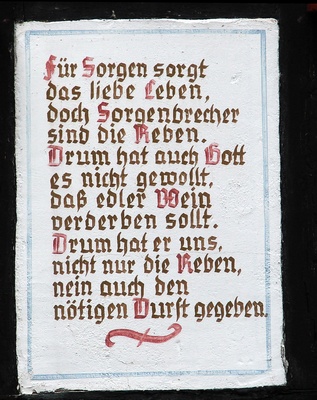 Für Sorgen sorgt
das liebe Leben,
doch Sorgenbrecher
sind die Reben.
Drum hat auch Gott
es nicht gewollt,
daß edler Wein
verderben sollt.
Drum hat er uns,
nicht nur die Reben,
nein auch den
nötigen Durst gegeben.